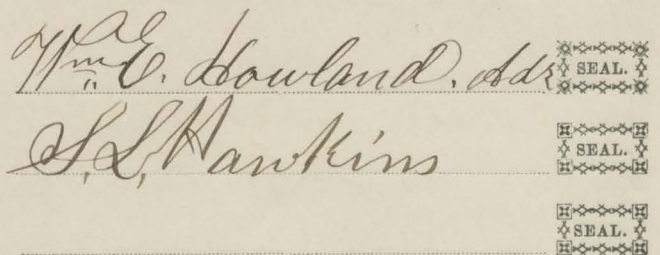 Wm E. Howland. Adr SEAL.
S. L. Hawkins SEAL.
SEAL.